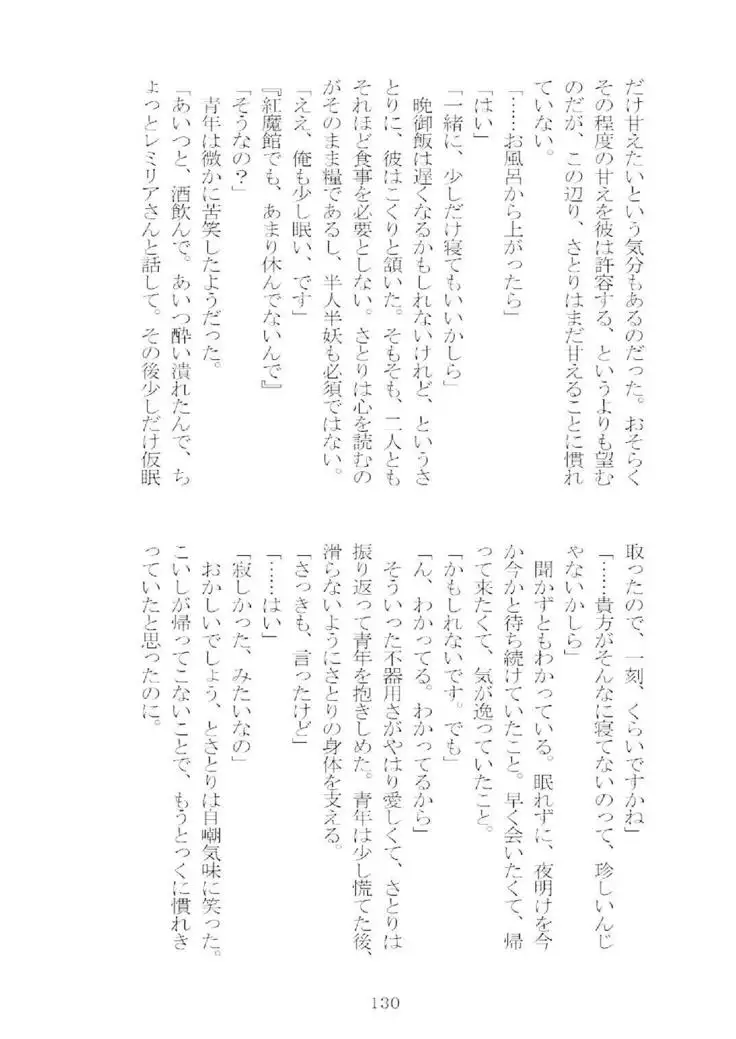 だけ甘えたいという気分もあるのだった。おそらく
その程度の甘えを彼は許容する、というよりも望む
のだが、この辺り、さとりはまだ甘えることに慣れ
ていない。
「……お風呂から上がったら」
「はい」
「一緒に、少しだけ寝てもいいかしら」
　晩御飯は遅くなるかもしれないけれど、というさ
とりに、彼はこくりと頷いた。そもそも、二人とも
それほど食事を必要としない。さとりは心を読むの
がそのまま糧であるし、半人半妖も必須ではない。
「ええ、俺も少し眠い、です」
『紅魔館でも、あまり休んでないんで』
「そうなの？」
　青年は微かに苦笑したようだった。
「あいつと、酒飲んで。あいつ酔い潰れたんで、ち
ょっとレミリアさんと話して。その後少しだけ仮眠
取ったので、一刻、くらいですかね」
「……貴方がそんなに寝てないのって、珍しいんじ
ゃないかしら」
　聞かずともわかっている。眠れずに、夜明けを今
か今かと待ち続けていたこと。早く会いたくて、帰
って来たくて、気が逸っていたこと。
「かもしれないです。でも」
「ん、わかってる。わかってるから」
　そういった不器用さがやはり愛しくて、さとりは
振り返って青年を抱きしめた。青年は少し慌てた後、
滑らないようにさとりの身体を支える。
「さっきも、言ったけど」
「……はい」
「寂しかった、みたいなの」
　おかしいでしょう、とさとりは自嘲気味に笑った。
こいしが帰ってこないことで、もうとっくに慣れき
っていたと思ったのに。
130